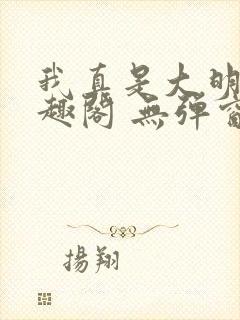 我真是大明
趣閣 無彈窗
揚翔